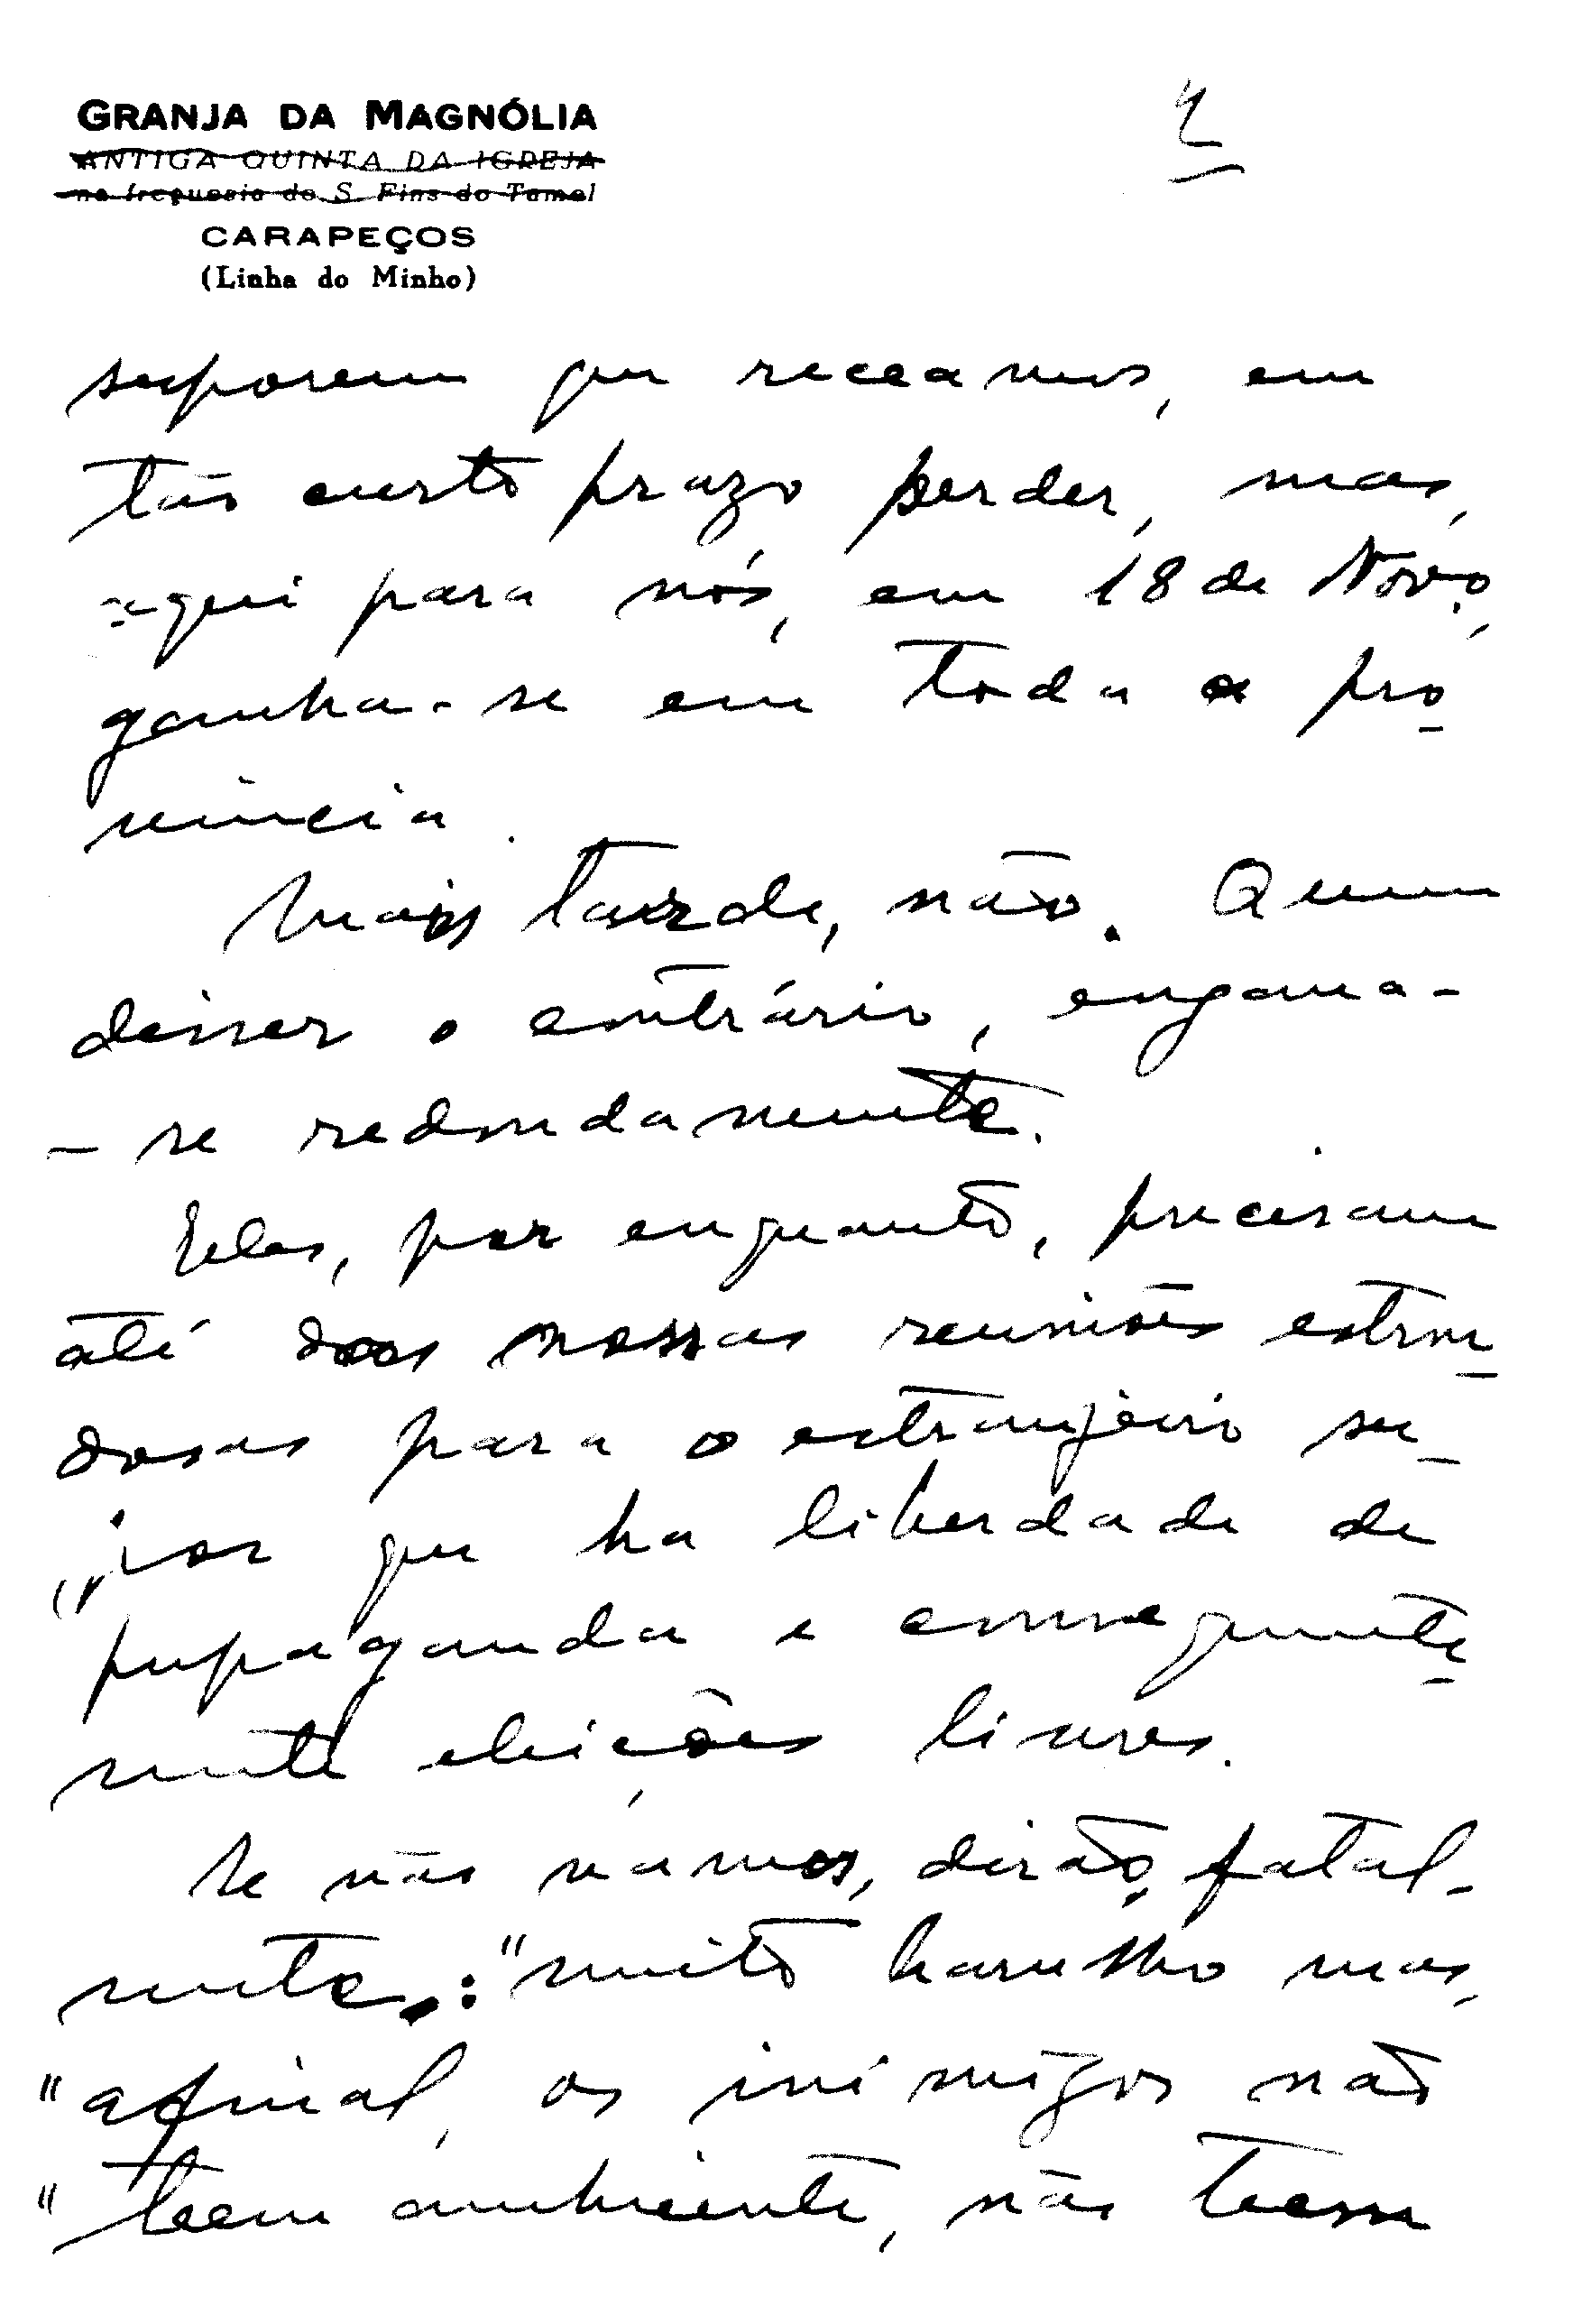 GRANJA DA MAGNÓLIA
4
ANTIGA QUINTA DA IGREJA
na freguesia de S. Fins do Tamel
CARAPEÇOS
(Linha do Minho)
suporem que receamos, em
tão curto prazo perder, mas,
aqui para nós, em 18 de Nov.o,
ganha-se em toda a pro-
vincia.
Mais tarde, não. Quem
disser o contrário, engana-
-se redondamente.
Eles, por enquanto, precisam
até das nossas reuniões estron-
dosas para o estranjeiro su-
por que ha liberdade de
propaganda e consequente-
mente eleições livres.
Se não vamos, dirão, fatal-
mente: "muito barulho mas,
"afinal, os inimigos não
"teem ambiente, não teem